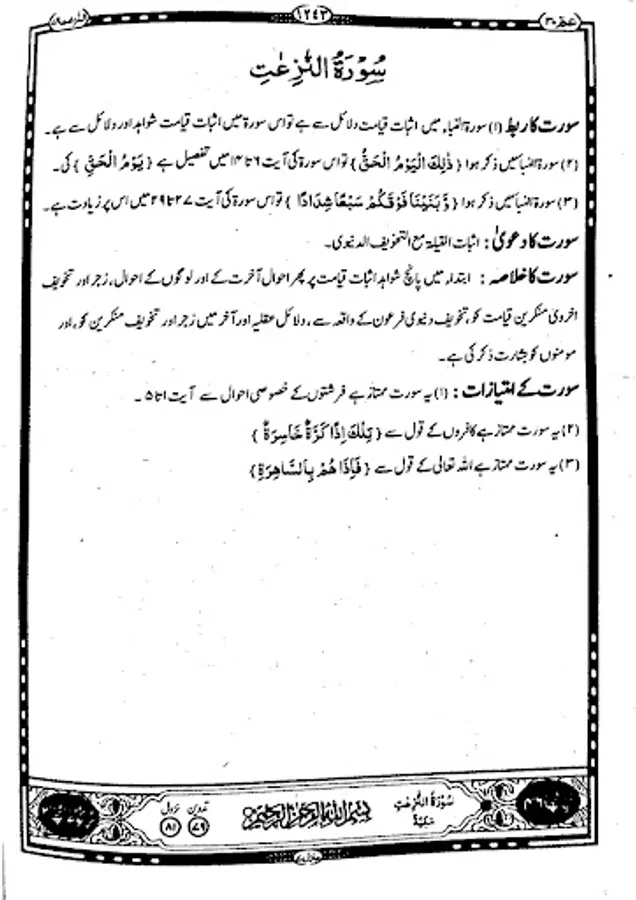 عم ۳۰
۱۲۴۳
سُوْرَةُ النّٰزِعٰتِ
سورت کا ربط (۱) سورۃ النباء میں اثبات قیامت دلائل سے ہے تو اس سورۃ میں اثبات قیامت شواہد اور دلائل سے ہے۔
(۲) سورۃ النبا میں ذکر ہوا {ذٰلِكَ الْيَوْمُ الْحَقُّ} تو اس سورۃ کی آیت ۶ تا ۱۴ میں تفصیل ہے {يَوْمُ الْحَقِّ} کی۔
(۳) سورۃ النبا میں ذکر ہوا {وَّبَنَيْنَا فَوْقَكُمْ سَبْعًا شِدَادًا} تو اس سورۃ کی آیت ۲۷ تا ۲۹ میں اس پر زیادت ہے۔
سورت کا دعویٰ: اثبات القیامۃ مع التخویف الدنیوی۔
سورت کا خلاصہ: ابتداء میں پانچ شواہد اثبات قیامت پر پھر احوال آخرت کے اور لوگوں کے احوال، زجر اور تخویف
اخروی منکرین قیامت کو، تخویف دنیوی فرعون کے واقعہ سے، دلائل عقلیہ اور آخر میں زجر اور تخویف منکرین کو، اور
مومنوں کو بشارت ذکر کی ہے۔
سورت کے امتیازات: (۱) یہ سورت ممتاز ہے فرشتوں کے خصوصی احوال سے آیت ۱ تا ۵۔
(۲) یہ سورت ممتاز ہے کافروں کے قول سے {تِلْكَ اِذًا كَرَّةٌ خَاسِرَةٌ}
(۳) یہ سورت ممتاز ہے اللہ تعالی کے قول سے {فَاِذَا هُمْ بِالسَّاهِرَةِ}
سُوْرَةُ النّٰزِعٰتِ
مَكِّيَّةٌ
بسم الله الرحمن الرحيم
تدوین ۷۹
نزول ۸۱